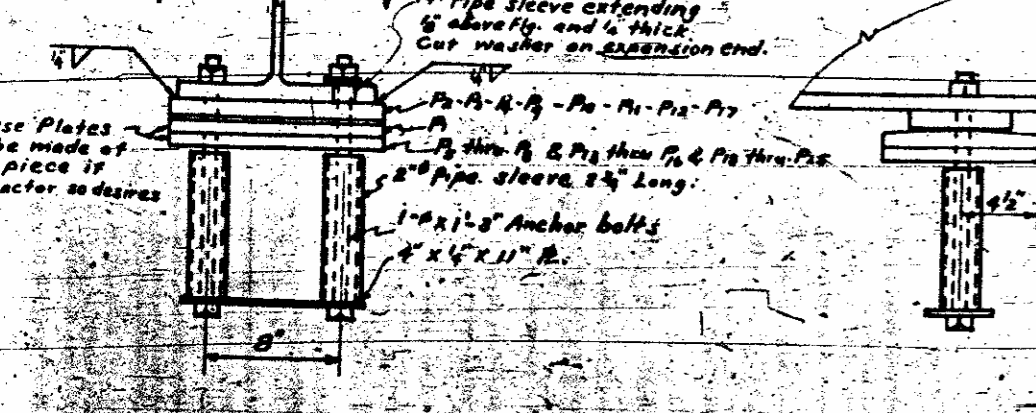 Pipe sleeve extending
⅛" above Flg. and ¼" thick
Cut washer on expansion end.
¼
¼
P2 - P3 - P4 - P9 - P10 - P11 - P12 - P17
P1
P5 thru P8 & P13 thru P16 & P18 thru P25
Plates
be made of
piece if
so desires
2"ø Pipe sleeve Long.
1"ø x 1'-3" Anchor bolts
4" x ¼" x 11" PL.
8"
4½"